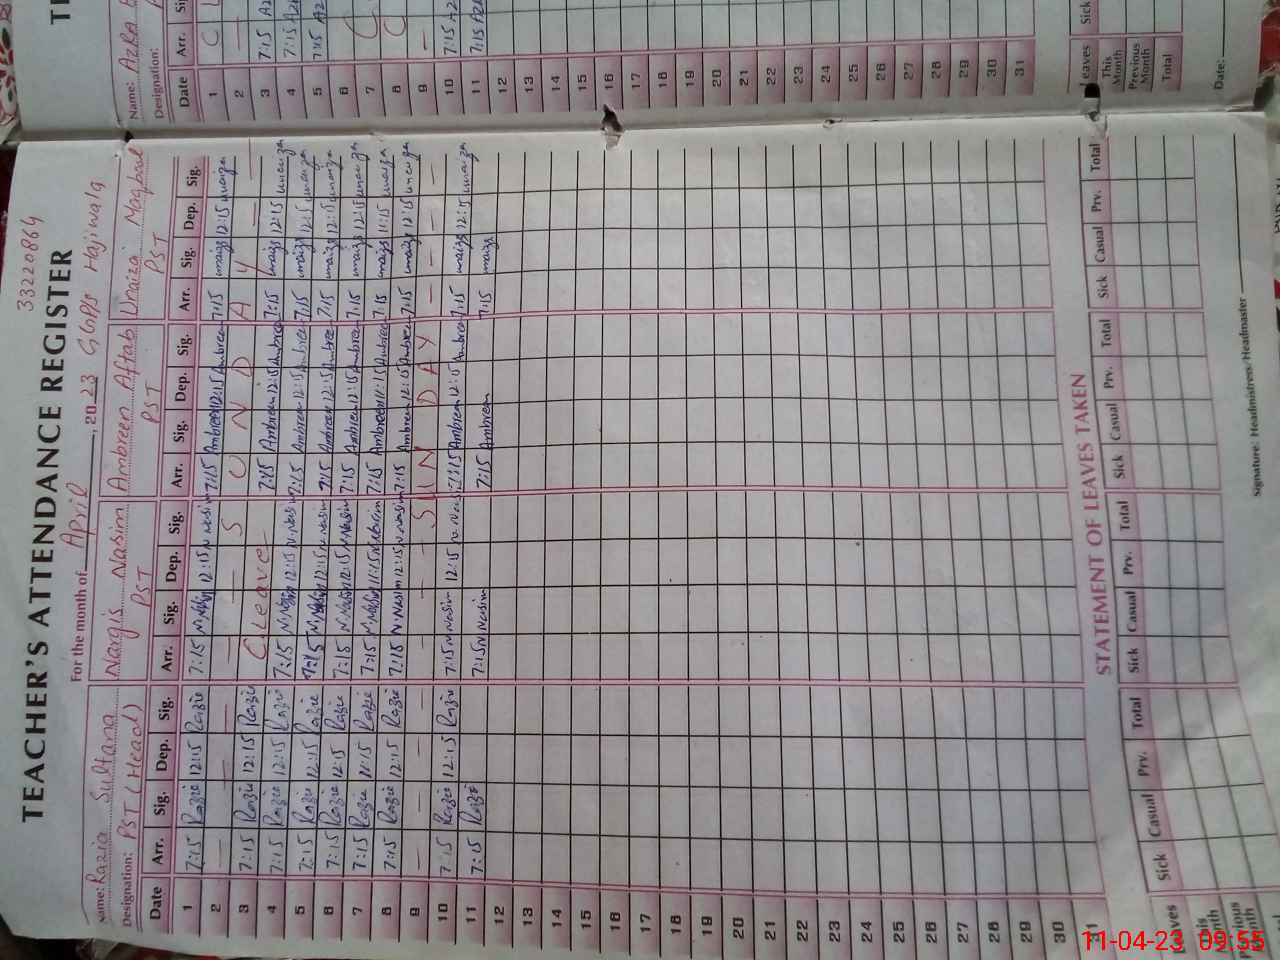 33220864
TEACHER'S ATTENDANCE REGISTER
For the month of April, 2023 GGPS Hajiwala
Name: Razia Sultana Nargis Nasim Ambreen Aftab Umaiza Maqbool
Designation: PST (Head) PST PST PST
Date Arr. Sig. Dep. Sig. Arr. Sig. Dep. Sig. Arr. Sig. Dep. Sig. Arr. Sig. Dep. Sig.
1 7:15 Razie 12:15 Razie 7:15 N.Nasim 12:15 N.Nasim 7:15 Ambreen 12:15 Ambreen 7:15 umaiza 12:15 umaiza
2 — — — — S U N D A Y — —
3 7:15 Razie 12:15 Razie C.Leave 7:15 Ambreen 12:15 Ambreen 7:15 umaiza 12:15 umaiza
4 7:15 Razie 12:15 Razie 7:15 N.Nasim 12:15 N.Nasim 7:15 Ambreen 12:15 Ambreen 7:15 umaiza 12:15 umaiza
5 7:15 Razie 12:15 Razie 7:15 N.Nasim 12:15 N.Nasim 7:15 Ambreen 12:15 Ambreen 7:15 umaiza 12:15 umaiza
6 7:15 Razie 12:15 Razie 7:15 N.Nasim 12:15 N.Nasim 7:15 Ambreen 12:15 Ambreen 7:15 umaiza 12:15 umaiza
7 7:15 Razie 11:15 Razie 7:15 N.Nasim 11:15 N.Nasim 7:15 Ambreen 11:15 Ambreen 7:15 umaiza 11:15 umaiza
8 7:15 Razie 12:15 Razie 7:15 N.Nasim 12:15 N.Nasim 7:15 Ambreen 12:15 Ambreen 7:15 umaiza 12:15 umaiza
9 — — — — — — — S U N D A Y — — — —
10 7:15 Razie 12:15 Razie 7:15 N.Nasim 12:15 N.Nasim 7:15 Ambreen 12:15 Ambreen 7:15 umaiza 12:15 umaiza
11 7:15 Razie 7:15 N.Nasim 7:15 Ambreen 7:15 umaiza
12
13
14
15
16
17
18
19
20
21
22
23
24
25
26
27
28
29
30
31
STATEMENT OF LEAVES TAKEN
Leaves Sick Casual Prv. Total Sick Casual Prv. Total Sick Casual Prv. Total Sick Casual Prv. Total
This Month
Previous Month
Signature: Headmistress/Headmaster
Name: AZRA
Designation:
Date Arr.
1 C
2 —
3 7:15
4 7:15
5 7:15
6
7 C
8 C
9 —
10 7:15
11 7:15
12
13
14
15
16
17
18
19
20
21
22
23
24
25
26
27
28
29
30
31
Leaves Sick
This Month
Previous Month
Total
Date:
11-04-23 09:55